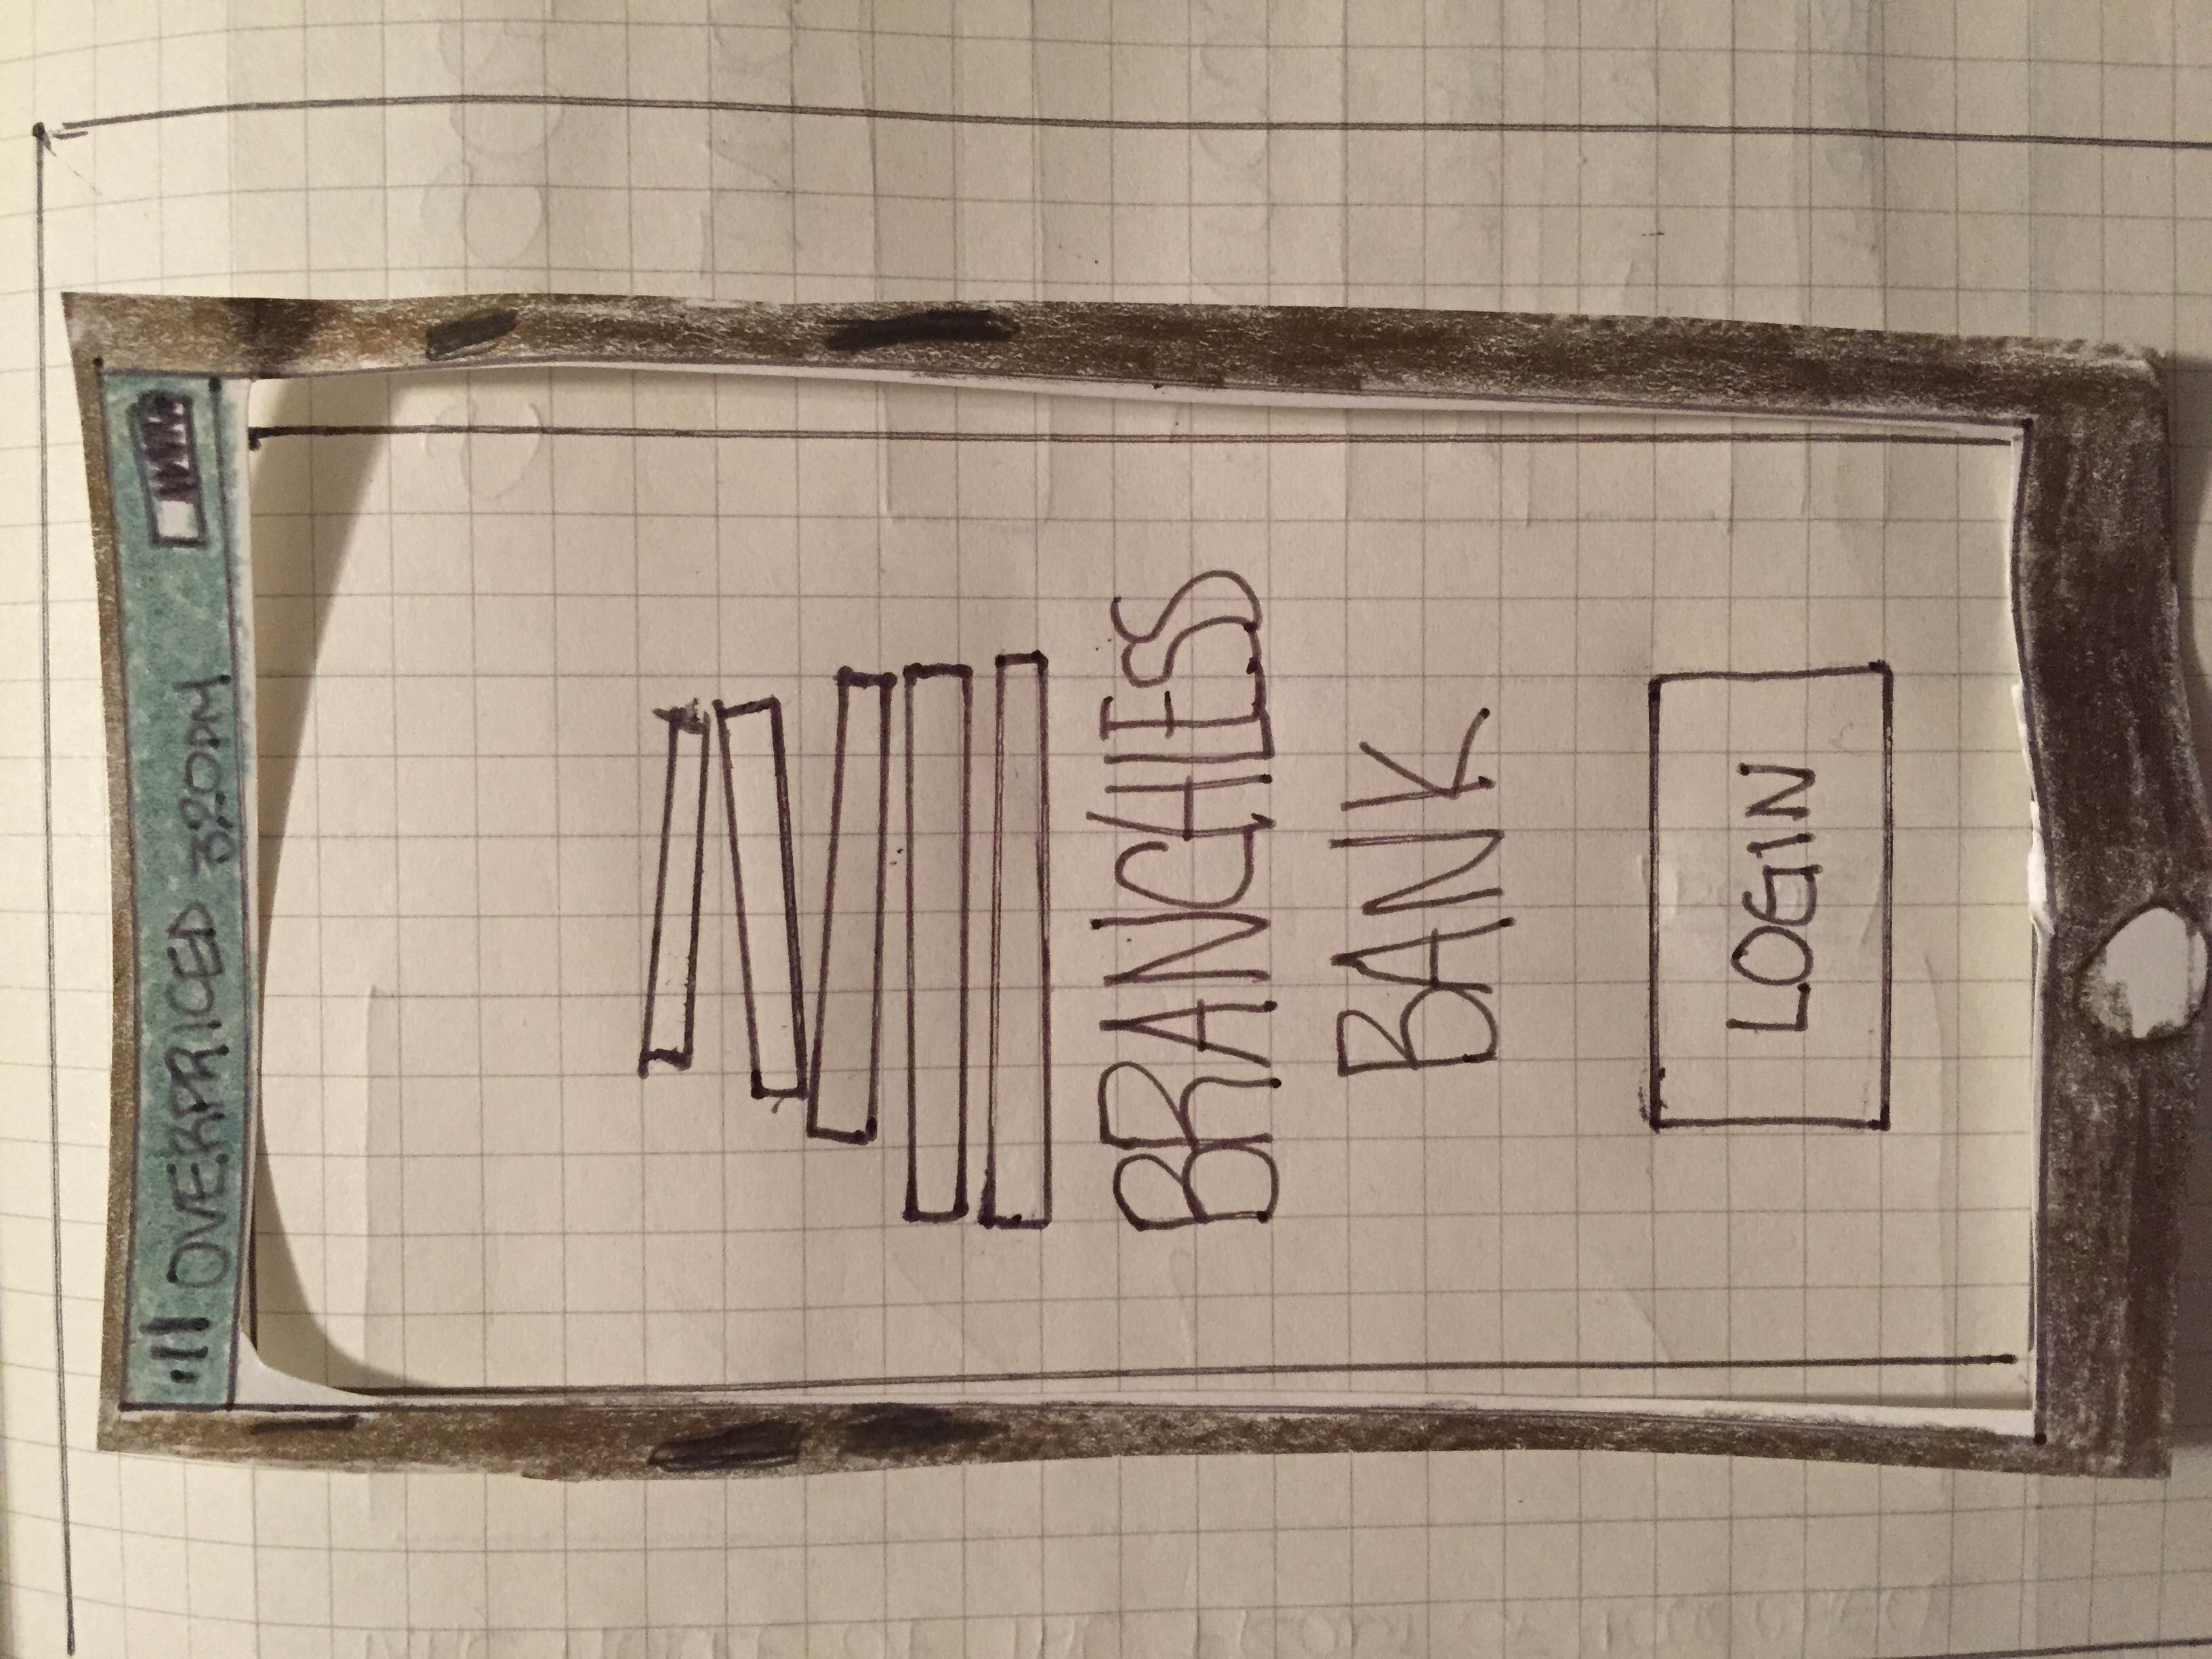 OVERPRICED 320PM
BRANCHLESS
BANK
LOGIN